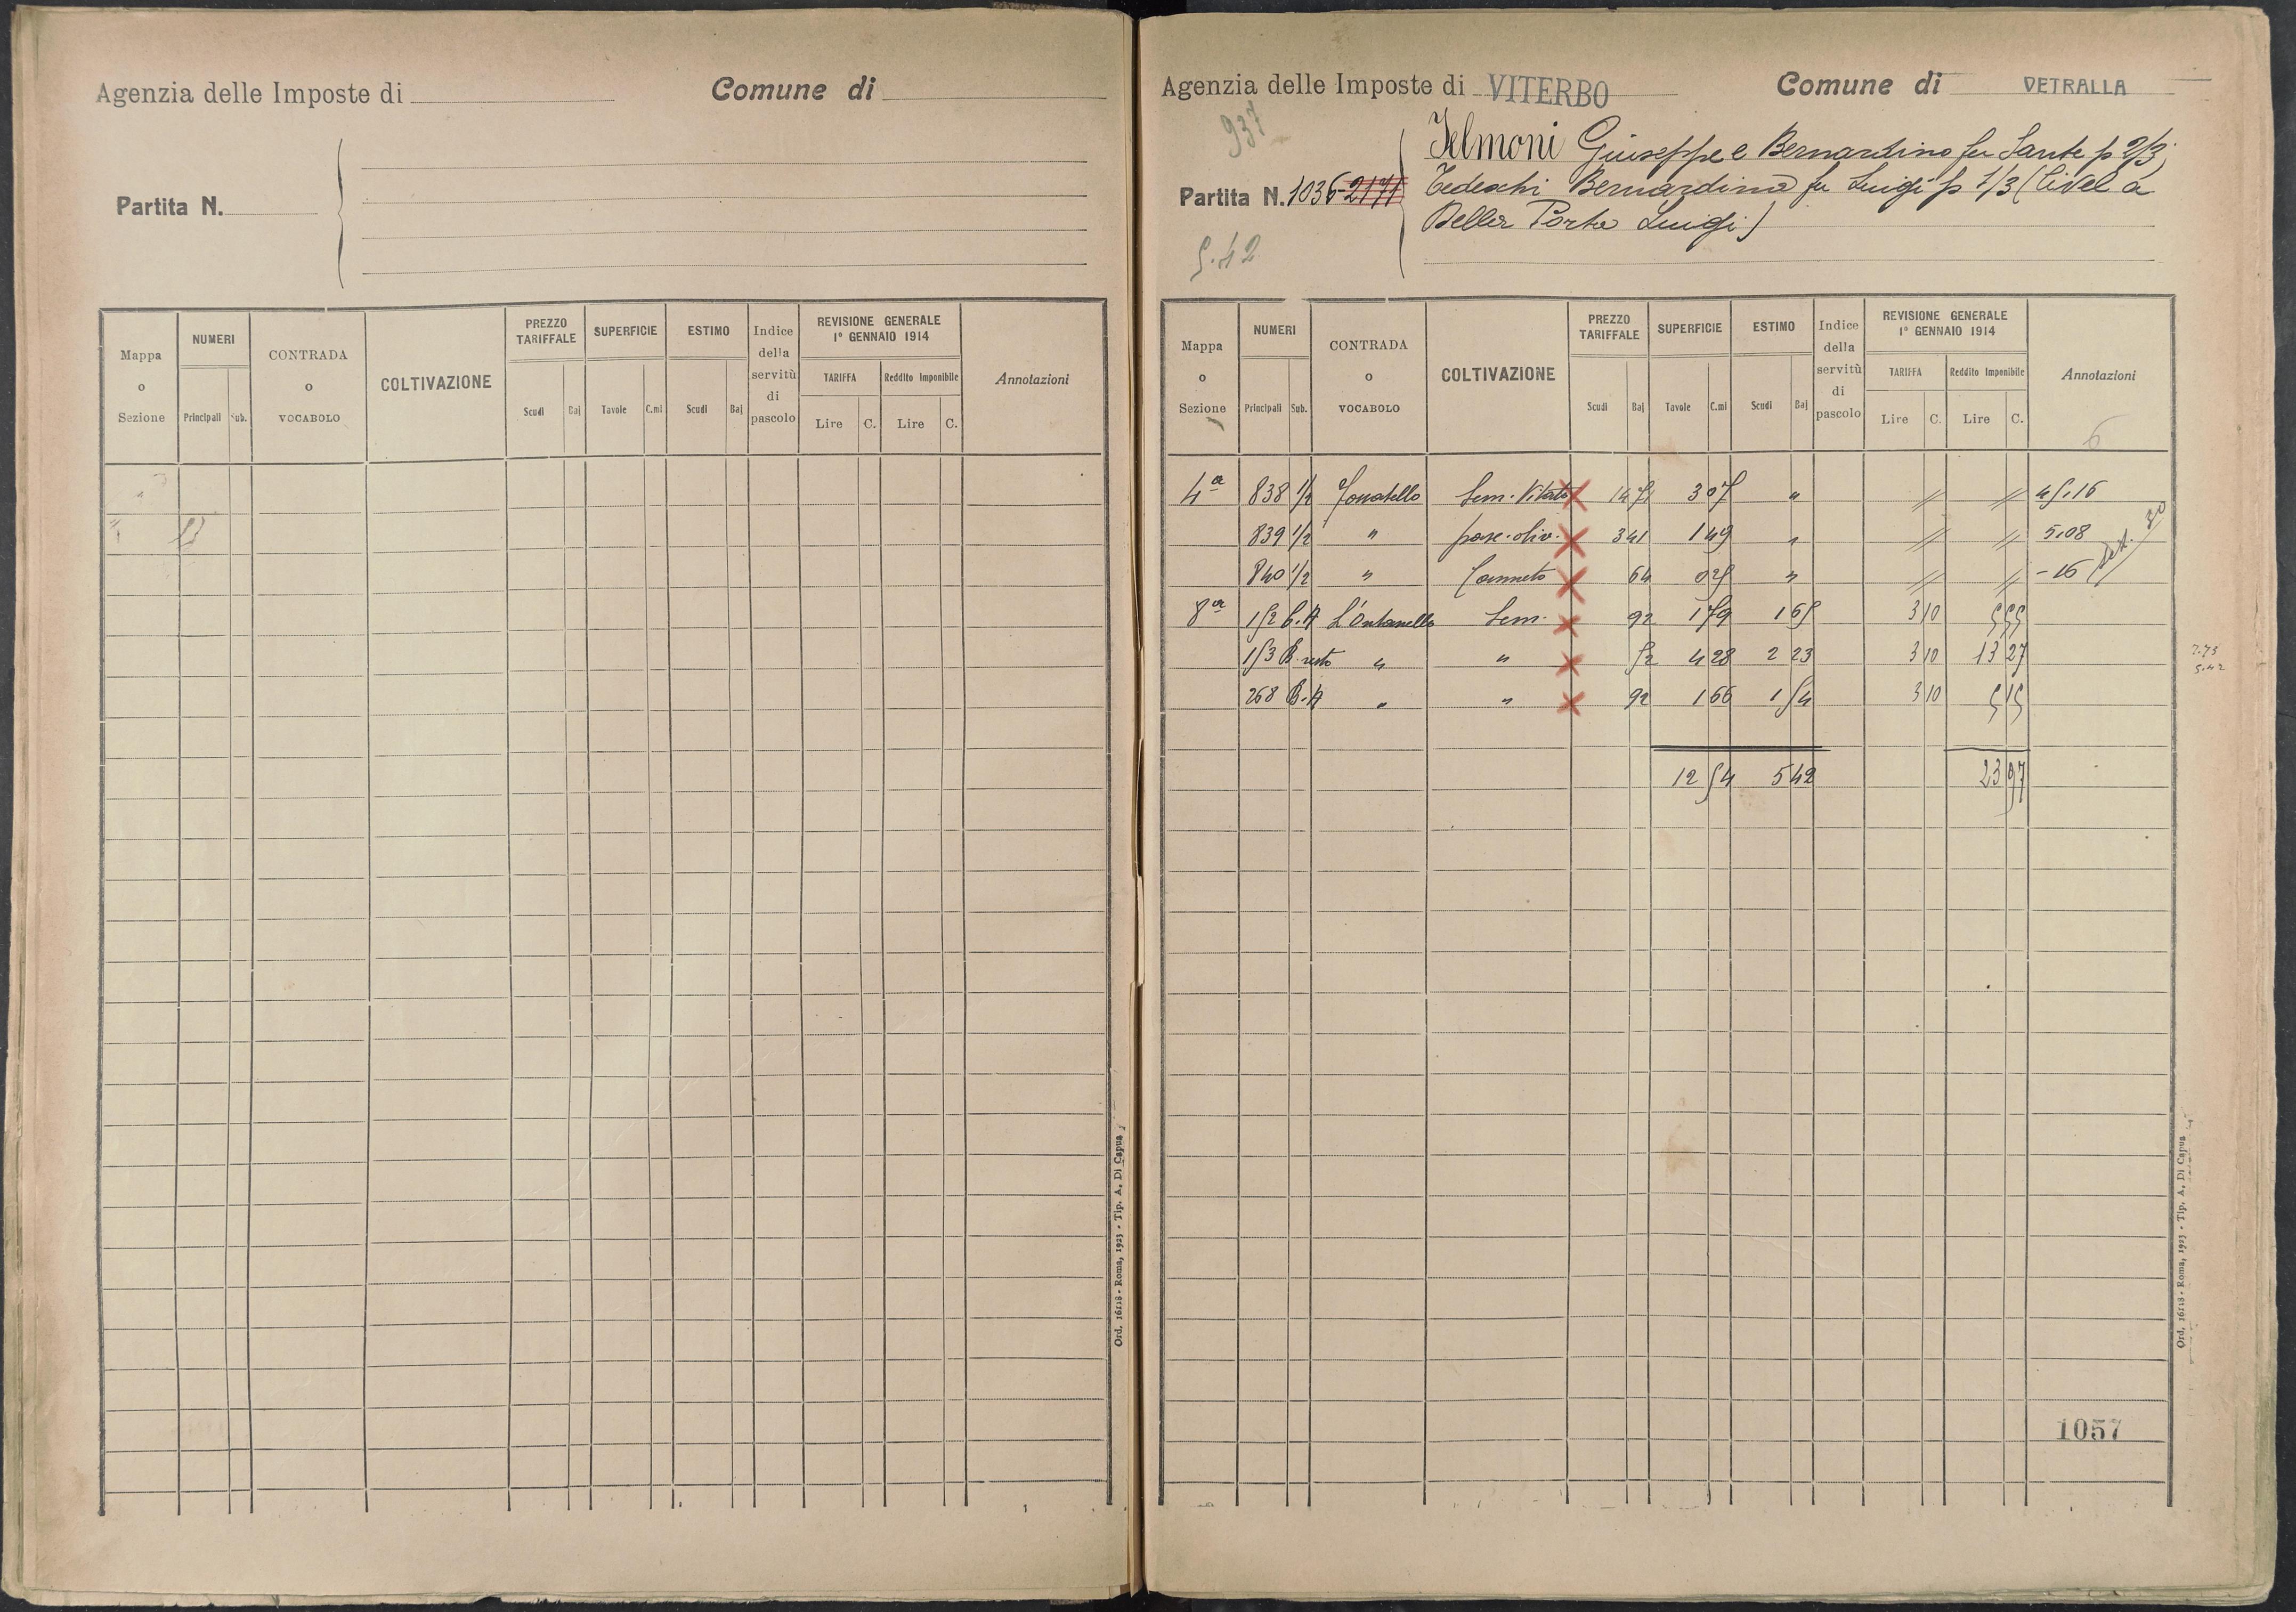 Agenzia delle Imposte di
Comune di
Partita N.
Mappa o Sezione
NUMERI
Principali
Sub.
CONTRADA o VOCABOLO
COLTIVAZIONE
PREZZO TARIFFALE
Scudi
Baj
SUPERFICIE
Tavole
C.mi
ESTIMO
Scudi
Baj
Indice della servitù di pascolo
REVISIONE GENERALE
1° GENNAIO 1914
TARIFFA
Lire
C.
Reddito Imponibile
Lire
C.
Annotazioni
Ord. 16118 - Roma, 1923 - Tip. A. Di Capua
Agenzia delle Imposte di VITERBO
Comune di VETRALLA
937
Giuseppe e Bernardino fu Sante p 2/3
Partita N. 1036 2171
Tedeschi Bernardino fu Luigi p 1/3 (livel a
Della Porta Luigi)
5.42
Mappa o Sezione
NUMERI
Principali
Sub.
CONTRADA o VOCABOLO
COLTIVAZIONE
PREZZO TARIFFALE
Scudi
Baj
SUPERFICIE
Tavole
C.mi
ESTIMO
Scudi
Baj
Indice della servitù di pascolo
REVISIONE GENERALE
1° GENNAIO 1914
TARIFFA
Lire
C.
Reddito Imponibile
Lire
C.
Annotazioni
6
4a 838 1/2 Sem. Vitato 3 07 " 
839 1/2 " pasc. oliv. 3 41 1 49 " 5.08
840 1/2 " Canneto 64 " - 16
8a L'Ontanello Sem. 92 1 79 3 10 5 55
resto " " 52 4 28 2 23 3 10 13 27
268 " " 92 1 66 1 54 3 10 5 15
7.73
5.42
12 54 5 42 23 97
1057
Ord. 16118 - Roma, 1923 - Tip. A. Di Capua